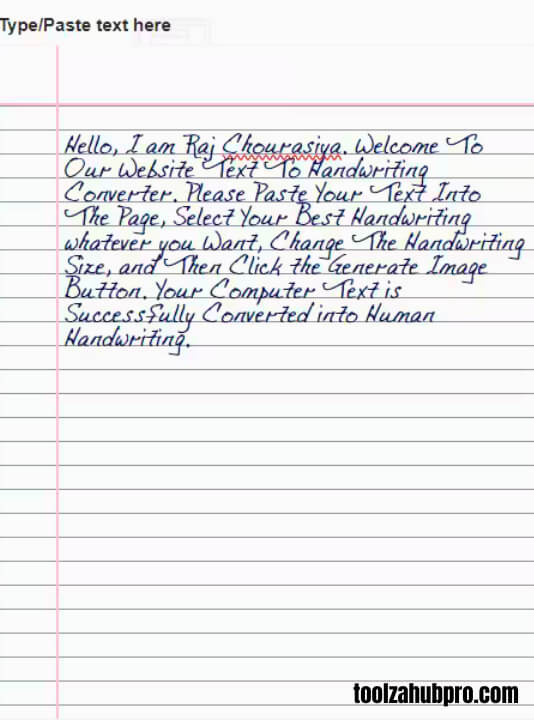 Type/Paste text here
Hello, I am Raj Chourasiya. Welcome To
Our Website Text To Handwriting
Converter. Please Paste Your Text Into
The Page, Select Your Best Handwriting
whatever you Want, Change The Handwriting
Size, and Then Click the Generate Image
Button. Your Computer Text is
Successfully Converted into Human
Handwriting.
toolzahubpro.com